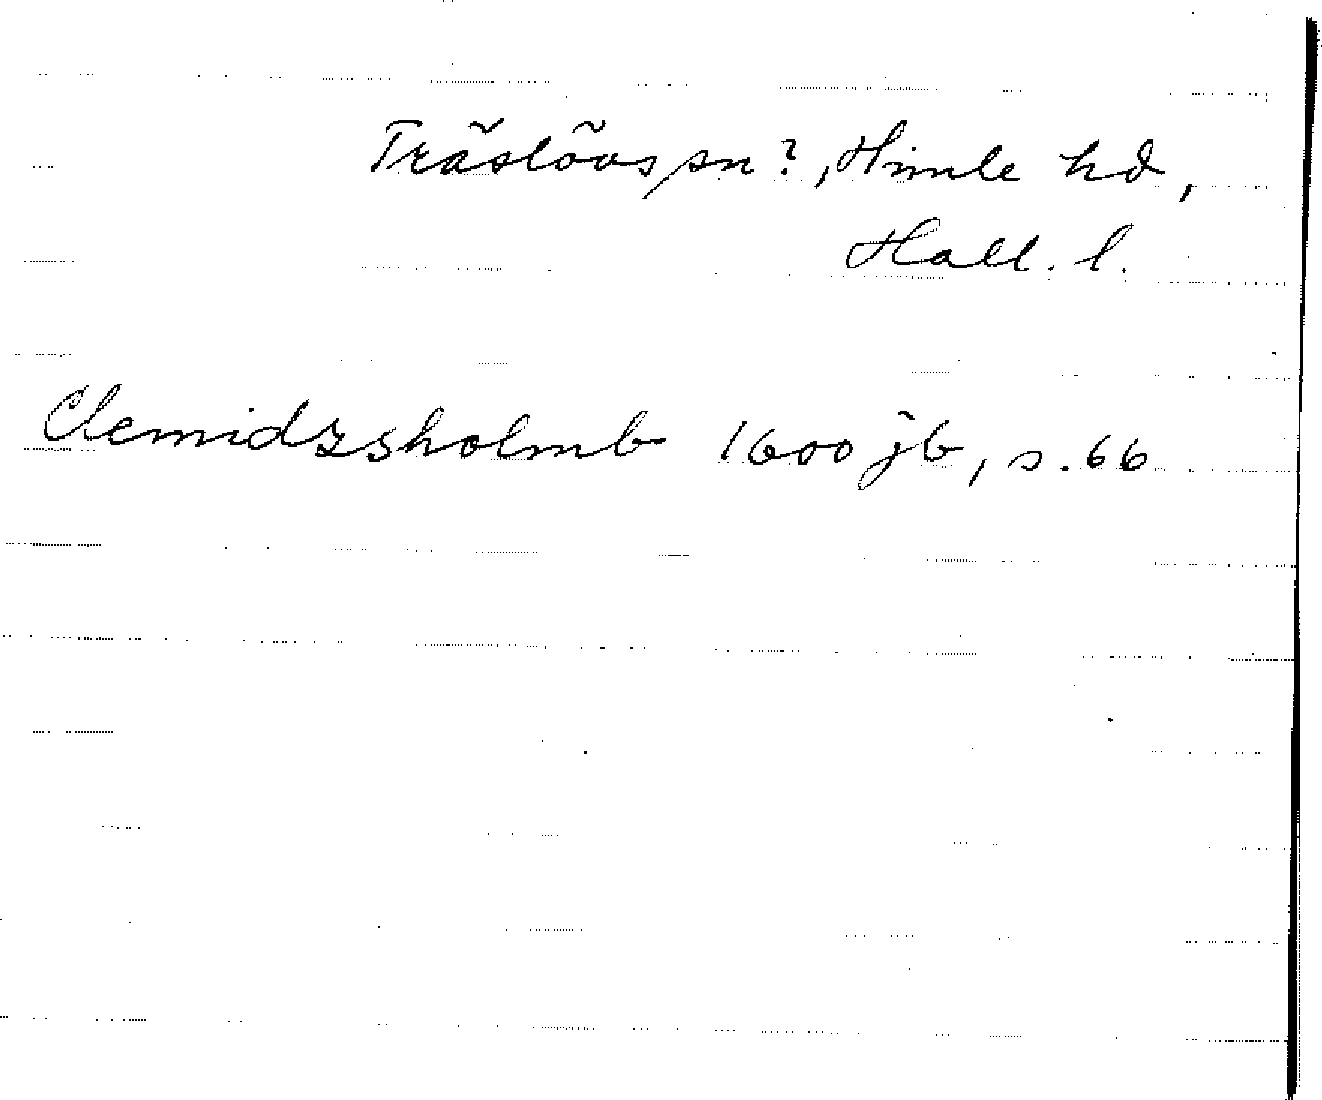 Träslövs sn?, Himle hd,
Hall. l.
Clemidzsholmb 1600 jb, s. 66